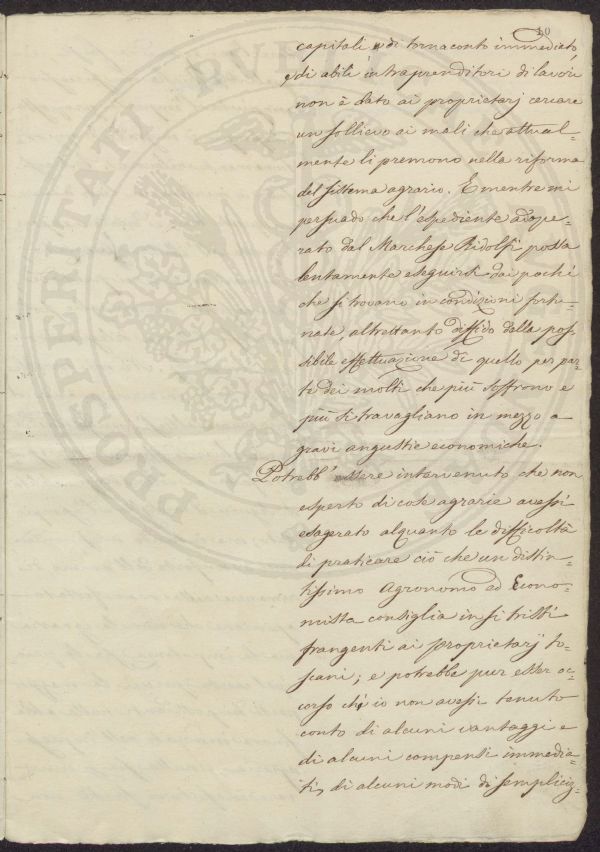 10
capitali, di tornaconto immediato,
e di abili intraprenditori di lavori
non è dato ai proprietarj cercare
un sollievo ai mali che attual=
mente li premono nella riforma
del sistema agrario. E mentre mi
persuado che l'espediente adope=
rato dal Marchese Ridolfi possa
lentamente eseguirsi dai pochi
che si trovano in condizioni fortu=
nate, altrettanto diffido della pos=
sibile effettuazione di quello per par=
te dei molti che più soffrono e
più si travagliano in mezzo a
gravi angustie economiche.
Potrebb' essere intervenuto che non
esperto di cose agrarie avessi
esagerato alquanto le difficoltà
di praticare ciò che un distin=
tissimo Agronomo ed Econo=
mista consiglia in sì tristi
frangenti ai proprietarj to=
scani; e potrebbe pur esser oc=
corso ch' io non avessi tenuto
conto di alcuni vantaggi e
di alcuni compensi immedia=
ti, di alcuni modi di empliciz=
PROSPERITATI PVBLICAE